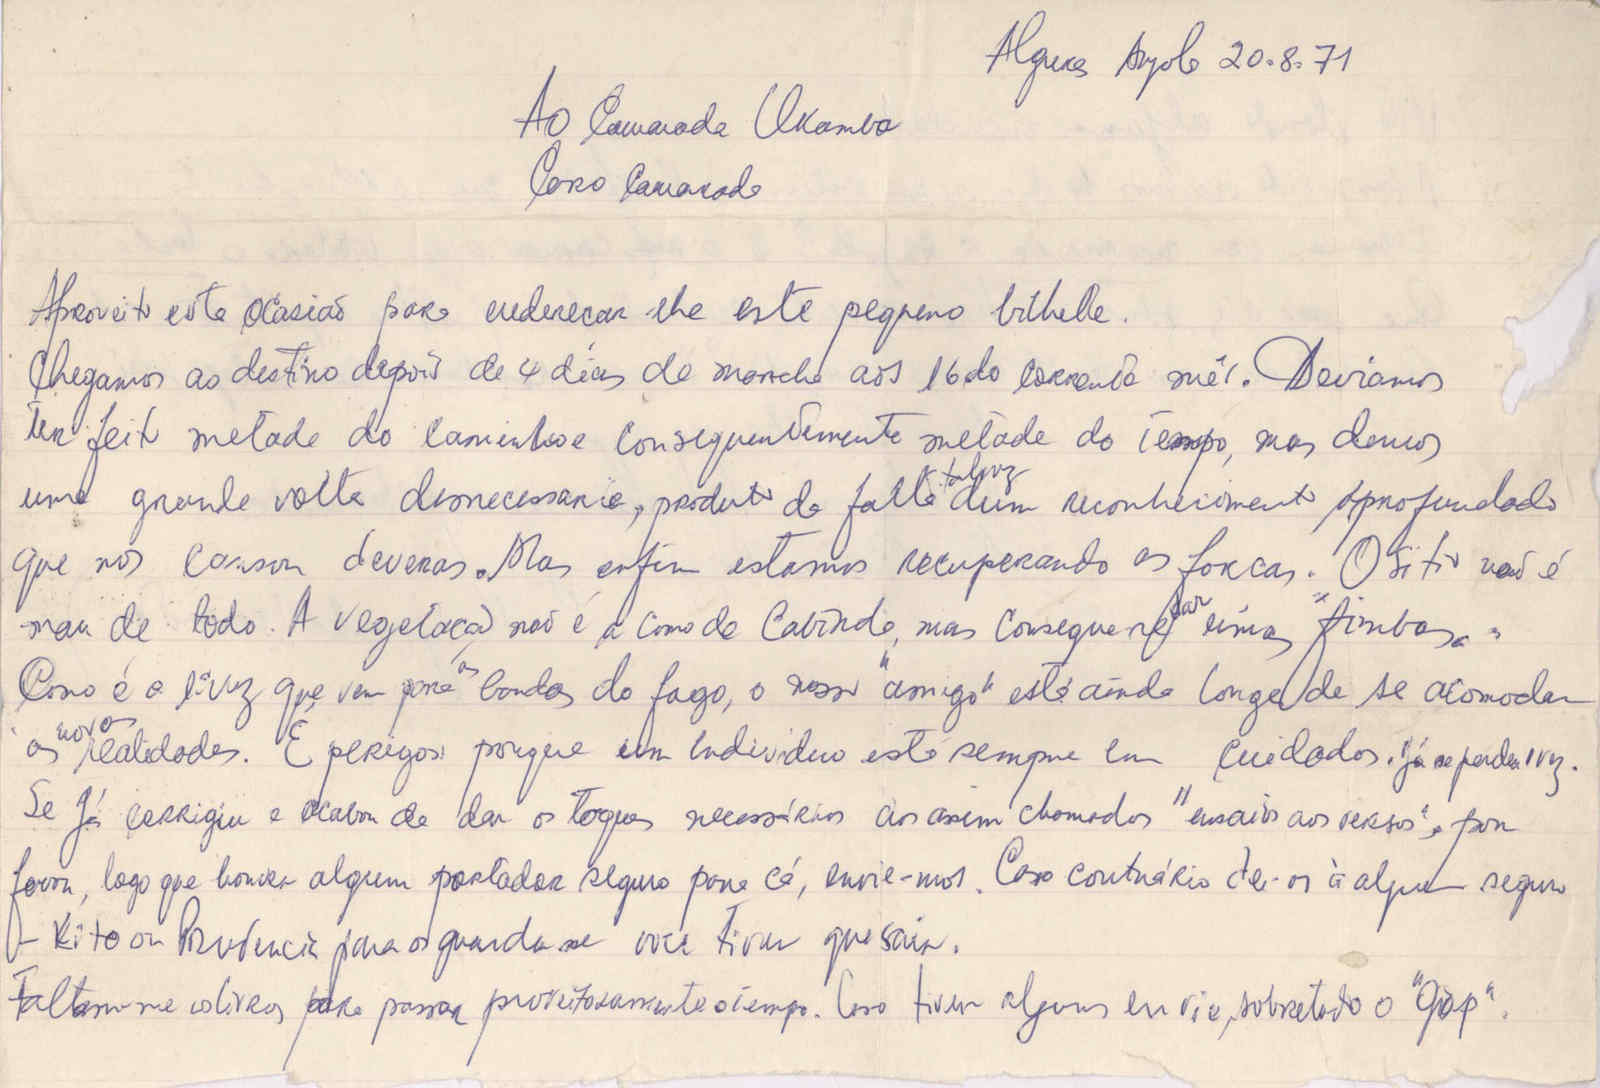 Algures Angola 20.8.71
Ao Camarada Ukamba
Caro Camarada
Aproveito esta ocasião para enderecar-lhe este pequeno bilhete.
Chegamos ao destino depois de 4 días de marcha aos 16 do corrente mês. Deviamos
ter feito metade do caminho e consequentemente metade do tempo, mas demos
uma grande volta desnecessaria, produto da falta talvez dum reconhecimento aprofundado
que nos cansou deveras. Mas enfim estamos recuperando as forcas. O sitio não é
mau de todo. A vegetação não é a como de Cabinda, mas consegue-se dar umas "fimbas".
Como é a 1ª vez que vem para as bandas do fogo, o nosso "amigo" está ainda longe de se acomodar
as novas realidades. É perigoso porque um individuo está sempre em cuidados. Já se perdeu 1 vez.
Se já corrigiu e acabou de dar os toques necessários aos assim chamados "ensaios aos versos", por
favor, logo que houver algum portador seguro para cá, envie-mos. Caso contrário dei-os à alguem seguro
- Kito ou Prudencia para os guardar se voce tiver que sair.
Faltam-me os livros para passar proveitosamente o tempo. Caso tiver alguns envie, sobretudo o "Giap".